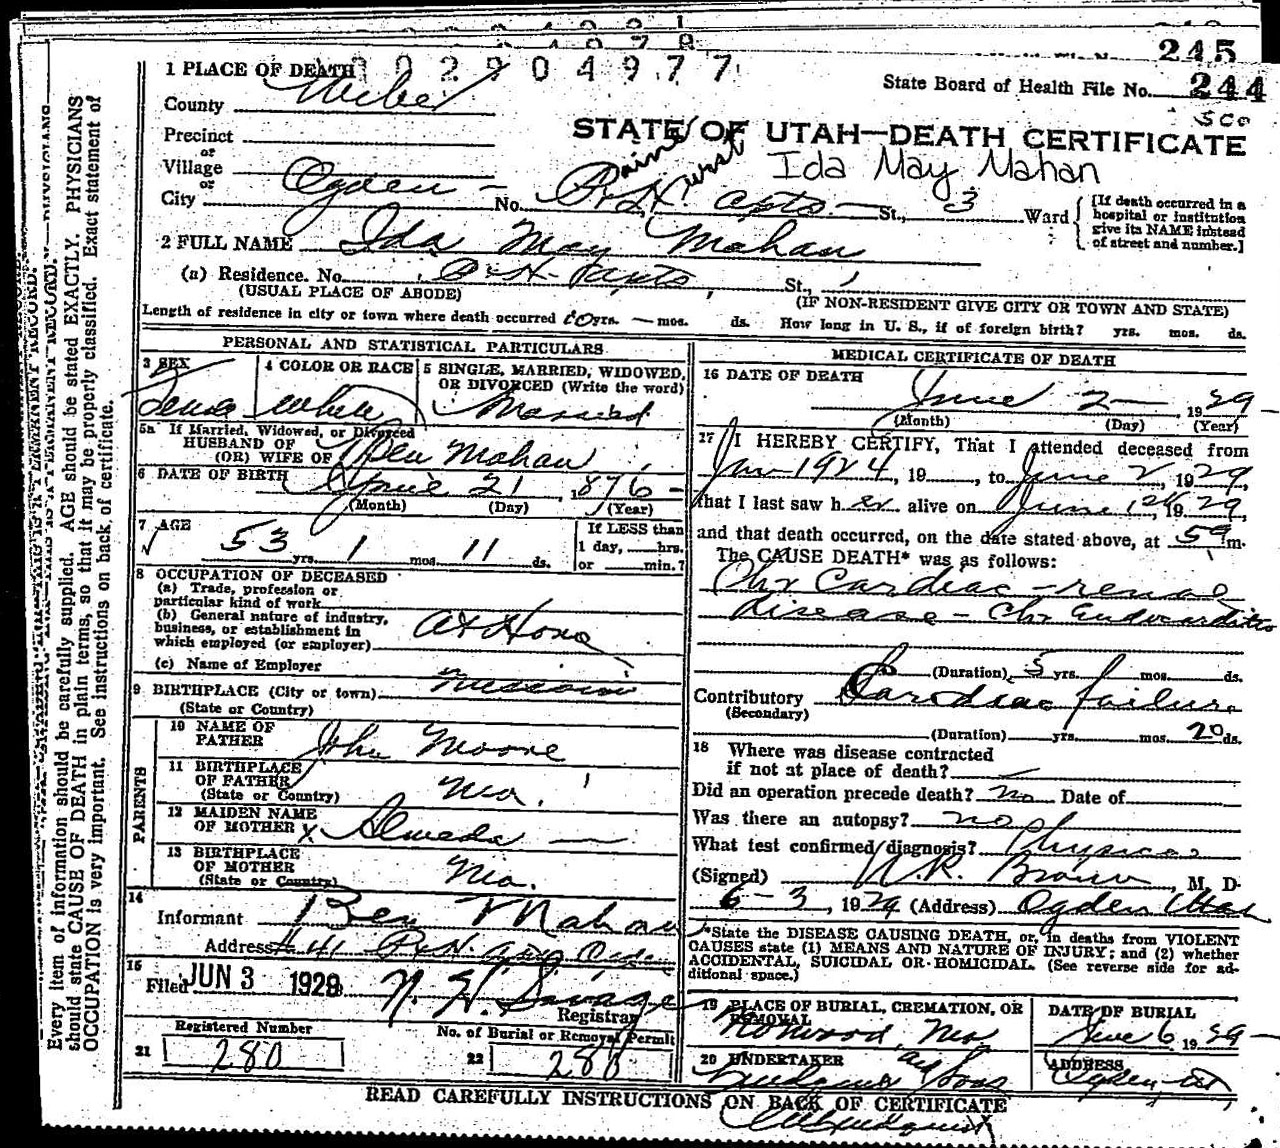 245
302904977
State Board of Health File No. 244
STATE OF UTAH—DEATH CERTIFICATE
Ida May Mahan
1 PLACE OF DEATH
County Weber
Precinct
or
Village
or
City Ogden — No. P & H Apts — St., 3 Ward
Paine Hurst
[If death occurred in a hospital or institution give its NAME instead of street and number.]
2 FULL NAME Ida May Mahan
(a) Residence. No. P & H Apts, St.,
(USUAL PLACE OF ABODE)
(IF NON-RESIDENT GIVE CITY OR TOWN AND STATE)
Length of residence in city or town where death occurred yrs. — mos. ds. How long in U. S., if of foreign birth? yrs. mos. ds.
PERSONAL AND STATISTICAL PARTICULARS
3 SEX Female
4 COLOR OR RACE White
5 SINGLE, MARRIED, WIDOWED, OR DIVORCED (Write the word) Married
5a If Married, Widowed, or Divorced
HUSBAND OF
(OR) WIFE OF Ben Mahan
6 DATE OF BIRTH April 21, 1876 —
(Month) (Day) (Year)
7 AGE 53 yrs. 1 mos. 11 ds.
If LESS than
1 day, hrs.
or min.?
8 OCCUPATION OF DECEASED
(a) Trade, profession or
particular kind of work
(b) General nature of industry,
business, or establishment in
which employed (or employer) At Home
(c) Name of Employer
9 BIRTHPLACE (City or town) Missouri
(State or Country)
PARENTS
10 NAME OF
FATHER John Moore
11 BIRTHPLACE
OF FATHER Mo.
(State or Country)
12 MAIDEN NAME
OF MOTHER x Almeda —
13 BIRTHPLACE
OF MOTHER Mo.
(State or Country)
14
Informant Ben Mahan
Address # 41 P & H Apts Ogden
15
Filed JUN 3 1929 Savage
Registrar
Registered Number
21 280
No. of Burial or Removal Permit
22 280
MEDICAL CERTIFICATE OF DEATH
16 DATE OF DEATH
June 2 — 1929 —
(Month) (Day) (Year)
17 I HEREBY CERTIFY, That I attended deceased from
Jan 1924, 19 , to June 2, 1929,
that I last saw her alive on June 1st, 1929,
and that death occurred, on the date stated above, at m.
The CAUSE DEATH* was as follows:
Chr Cardiac — renal
disease — Chr Endocarditis
(Duration) 5 yrs. mos. ds.
Contributory Cardiac failure
(Secondary)
(Duration) yrs. mos. 20 ds.
18 Where was disease contracted
if not at place of death?
Did an operation precede death? no Date of
Was there an autopsy? no
What test confirmed diagnosis? Physical
(Signed) Brown, M. D.
6 - 3, 1929 (Address) Ogden Utah
*State the DISEASE CAUSING DEATH, or, in deaths from VIOLENT
CAUSES state (1) MEANS AND NATURE OF INJURY; and (2) whether
ACCIDENTAL, SUICIDAL OR HOMICIDAL. (See reverse side for ad-
ditional space.)
19 PLACE OF BURIAL, CREMATION, OR
REMOVAL Mo
DATE OF BURIAL
June 6 1929 —
20 UNDERTAKER
and Sons
ADDRESS
Ogden - Ut
READ CAREFULLY INSTRUCTIONS ON BACK OF CERTIFICATE
Every item of information should be carefully supplied. AGE should be stated EXACTLY. PHYSICIANS
should state CAUSE OF DEATH in plain terms, so that it may be properly classified. Exact statement of
OCCUPATION is very important. See instructions on back of certificate.